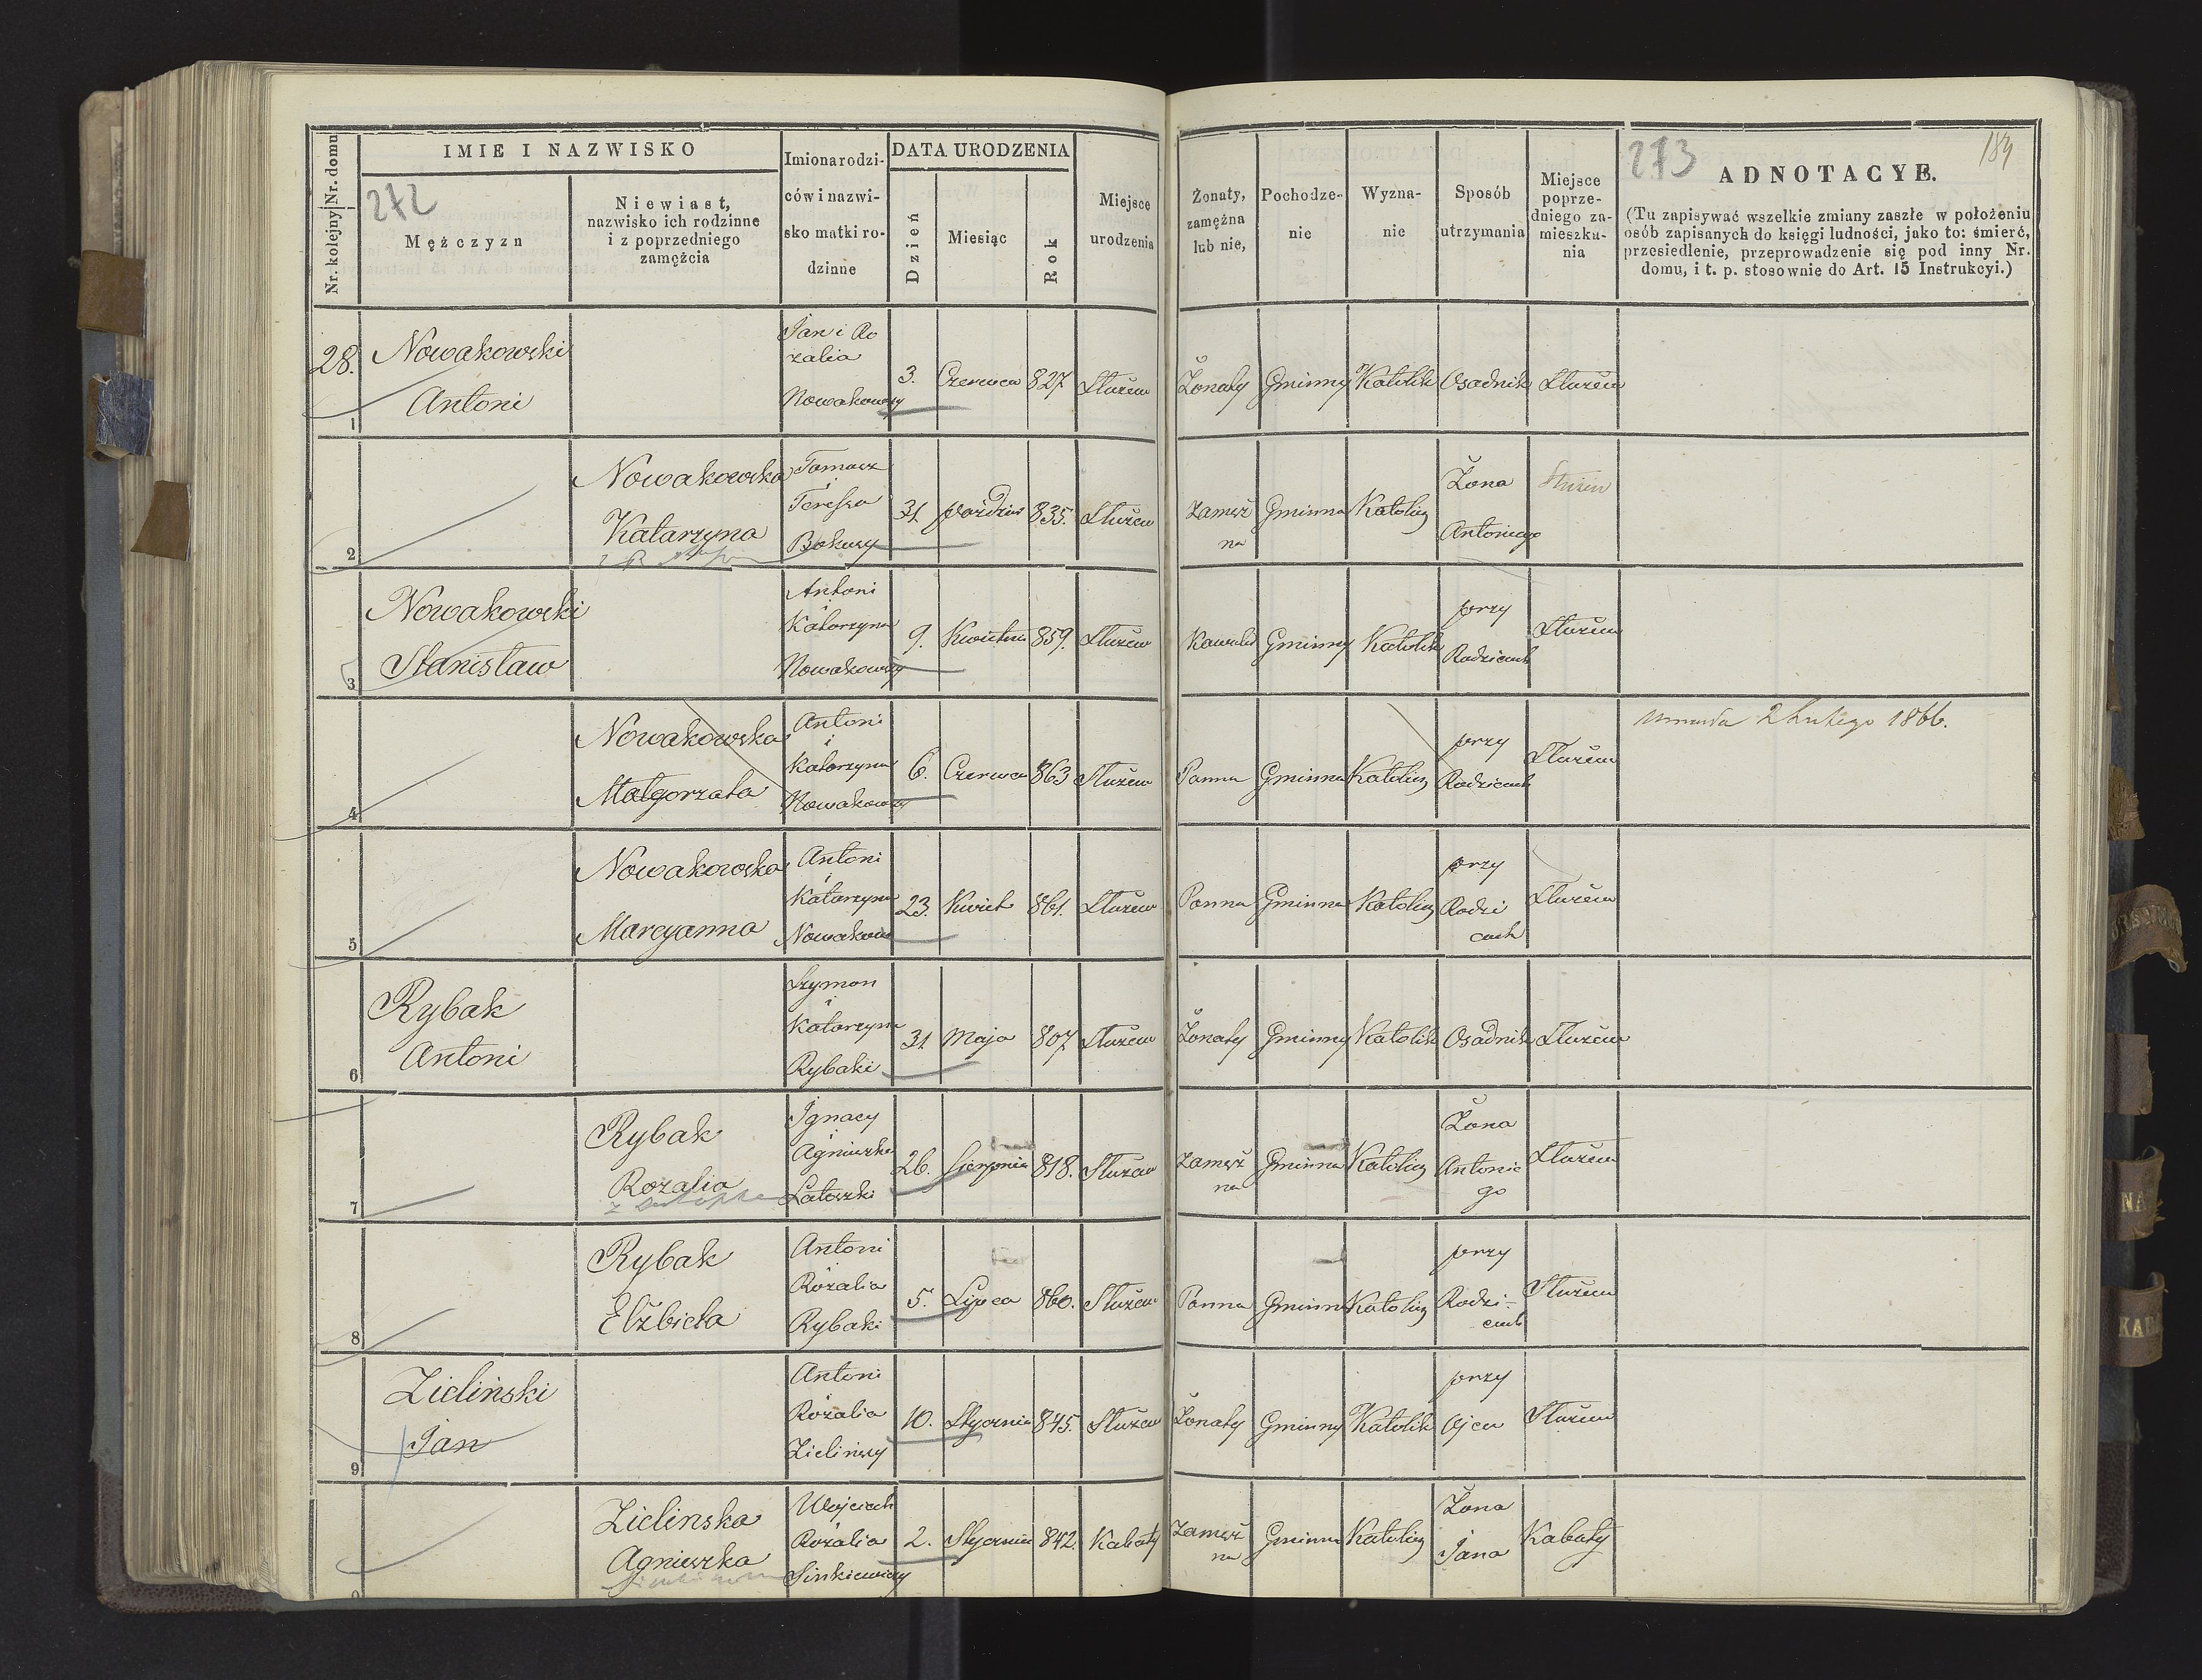 Nr. kolejny Nr. domu
IMIE I NAZWISKO
272
Mężczyzn
Niewiast,
nazwisko ich rodzinne
i z poprzedniego
zamężcia
Imiona rodzi-
ców i nazwi-
sko matki ro-
dzinne
DATA URODZENIA
Dzień
Miesiąc
Rok
Miejsce
urodzenia
Żonaty,
zamężna
lub nie,
Pochodze-
nie
Wyzna-
nie
Sposób
utrzymania
Miejsce
poprze-
dniego za-
mieszka-
nia
273
184
ADNOTACYE.
(Tu zapisywać wszelkie zmiany zaszłe w położeniu
osób zapisanych do księgi ludności, jako to: śmierć,
przesiedlenie, przeprowadzenie się pod inny Nr.
domu, i t. p. stosownie do Art. 15 Instrukcyi.)
28.
1
Nowakowski
Antoni
Jan i Ro
zalia
Nowakowscy
3.
Czerwca
827
Służew
Żonaty
Gminny
Katolik
Osadnik
Służew
2
Nowakowska
Katarzyna
Tomasz
i
Teressa
31
Paździer
835.
Służew
Zamęż
na
Gminna
Katolicz
Żona
Antoniego
Służew
3
Nowakowski
Stanisław
Antoni
i
Katarzyna
Nowakowscy
9.
Kwietnia
859.
Służew
Kawaler
Gminny
Katolik
przy
Rodzicach
Służew
4
Nowakowska
Małgorzata
Antoni
i
Katarzyna
Nowakowscy
6.
Czerwca
863
Służew
Panna
Gminna
Katolicz
przy
Rodzicach
Służew
umarła 2 Lutego 1866.
5
Nowakowska
Marcyanna
Antoni
i
Katarzyna
Nowakow
23.
Kwiet
861.
Służew
Panna
Gminna
Katolicz
przy
Rodzi
cach
Służew
6
Rybak
Antoni
Szymon
i
Katarzyna
Rybaki
31
Maja
807
Służew
Żonaty
Gminny
Katolik
Osadnik
Służew
7
Rybak
Rozalia
Ignacy
i
Agnieszka
Latoszki
26.
Sierpnia
818.
Służew
Zamęż
na
Gminna
Katolicz
Żona
Antonie
go
Służew
8
Rybak
Elżbieta
Antoni
i
Rozalia
Rybaki
5.
Lipca
860.
Służew
Panna
Gminna
Katolicz
przy
Rodzi-
cach
Służew
9
Zieliński
Jan
Antoni
i
Rozalia
Zielińscy
10.
Stycznia
845.
Służew
Żonaty
Gminny
Katolik
przy
Ojcu
Służew
Zielinska
Agnieszka
Wojciech
i
Rozalia
Sinkiewiczy
2.
Stycznia
842.
Kabaty
Zamęż
na
Gminna
Katolicz
Żona
Jana
Kabaty